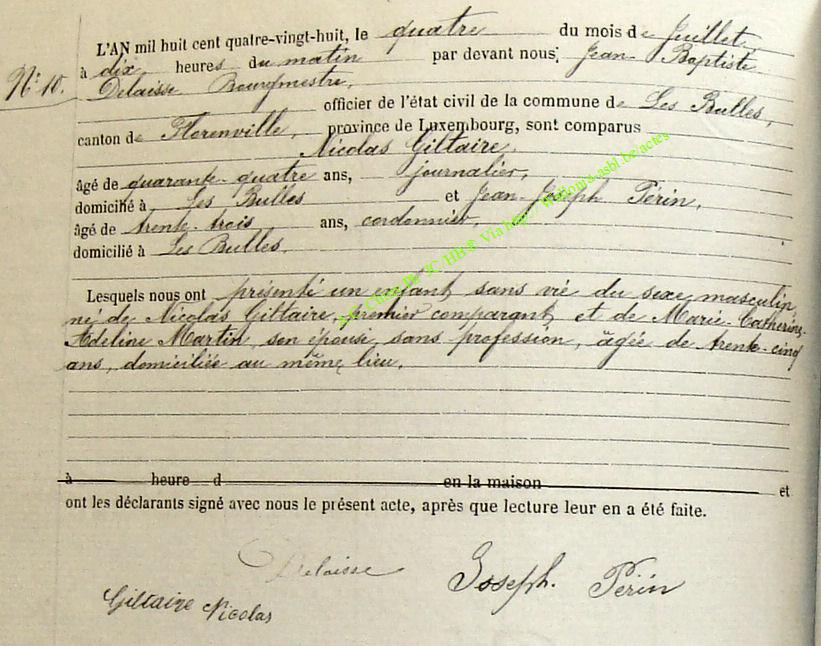 L'AN mil huit cent quatre-vingt-huit, le quatre du mois de Juillet,
à dix heures du matin par devant nous; Jean-Baptiste
N° 10.
Delaisse Bourgmestre,
officier de l'état civil de la commune de Les Bulles,
canton de Florenville, province de Luxembourg, sont comparus
Nicolas Giltaire,
âgé de quarante-quatre ans, journalier,
domicilié à Les Bulles et Jean-Joseph Périn,
âgé de trente-trois ans, cordonnier,
domicilié à Les Bulles.
Lesquels nous ont présenté un enfant sans vie du sexe masculin,
né de Nicolas Giltaire, premier comparant et de Marie-Catherine
Adeline Martin, son épouse, sans profession, âgée de trente-cinq
ans, domiciliée au même lieu.
à heure d en la maison et
ont les déclarants signé avec nous le présent acte, après que lecture leur en a été faite.
Delaisse Joseph. Périn
Giltaire Nicolas